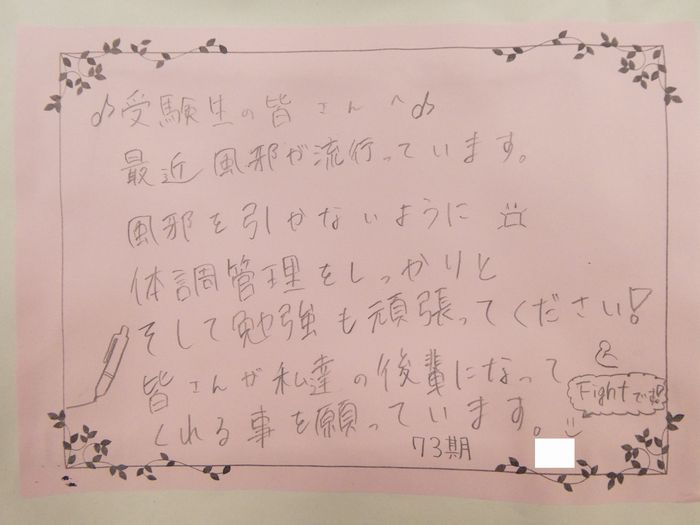 ♪受験生の皆さんへ♪
最近風邪が流行っています。
風邪を引かないように
体調管理をしっかりと
そして勉強も頑張ってください!
皆さんが私達の後輩になって
Fightです!
くれる事を願っています。
73期